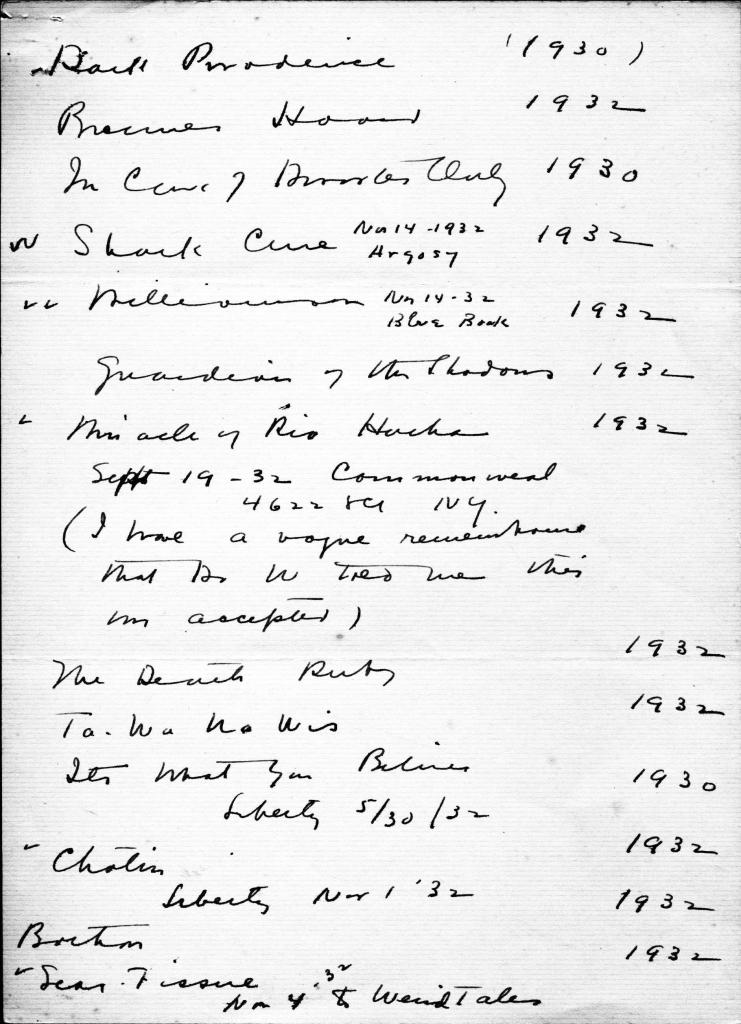 (1930)
1932
In Case of Disaster Only 1930
Shark Cure Nov 14-1932 1932
Argosy
Williamson Nov 14-32 1932
Blue Book
Guardian of the Shadows 1932
Miracle of Rio Hacha 1932
Sept 19-32 Commonweal
4622 NY.
(I have a vague remembrance
that Dr W told me this
was accepted)
1932
The Death Ruby
1932
Ta-Wa Na Wis
Its What You Believe
1930
Liberty 5/30/32
1932
Liberty Nov 1 '32
1932
Bothon
1932
Scar-Tissue
Nov 4 '32 to Weird Tales